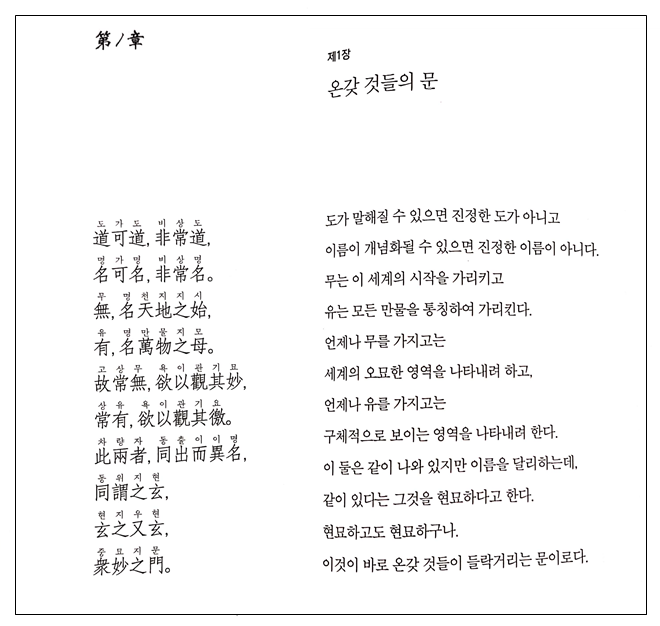 第1章
도 가 도 비 상 도
道可道, 非常道,
명 가 명 비 상 명
名可名, 非常名。
무 명 천 지 지 시
無, 名天地之始,
유 명 만 물 지 모
有, 名萬物之母。
고 상 무 욕 이 관 기 묘
故常無, 欲以觀其妙,
상 유 욕 이 관 기 요
常有, 欲以觀其徼。
차 량 자 동 출 이 이 명
此兩者, 同出而異名,
동 위 지 현
同謂之玄,
현 지 우 현
玄之又玄,
중 묘 지 문
衆妙之門。
제1장
온갖 것들의 문
도가 말해질 수 있으면 진정한 도가 아니고
이름이 개념화될 수 있으면 진정한 이름이 아니다.
무는 이 세계의 시작을 가리키고
유는 모든 만물을 통칭하여 가리킨다.
언제나 무를 가지고는
세계의 오묘한 영역을 나타내려 하고,
언제나 유를 가지고는
구체적으로 보이는 영역을 나타내려 한다.
이 둘은 같이 나와 있지만 이름을 달리하는데,
같이 있다는 그것을 현묘하다고 한다.
현묘하고도 현묘하구나.
이것이 바로 온갖 것들이 들락거리는 문이로다.